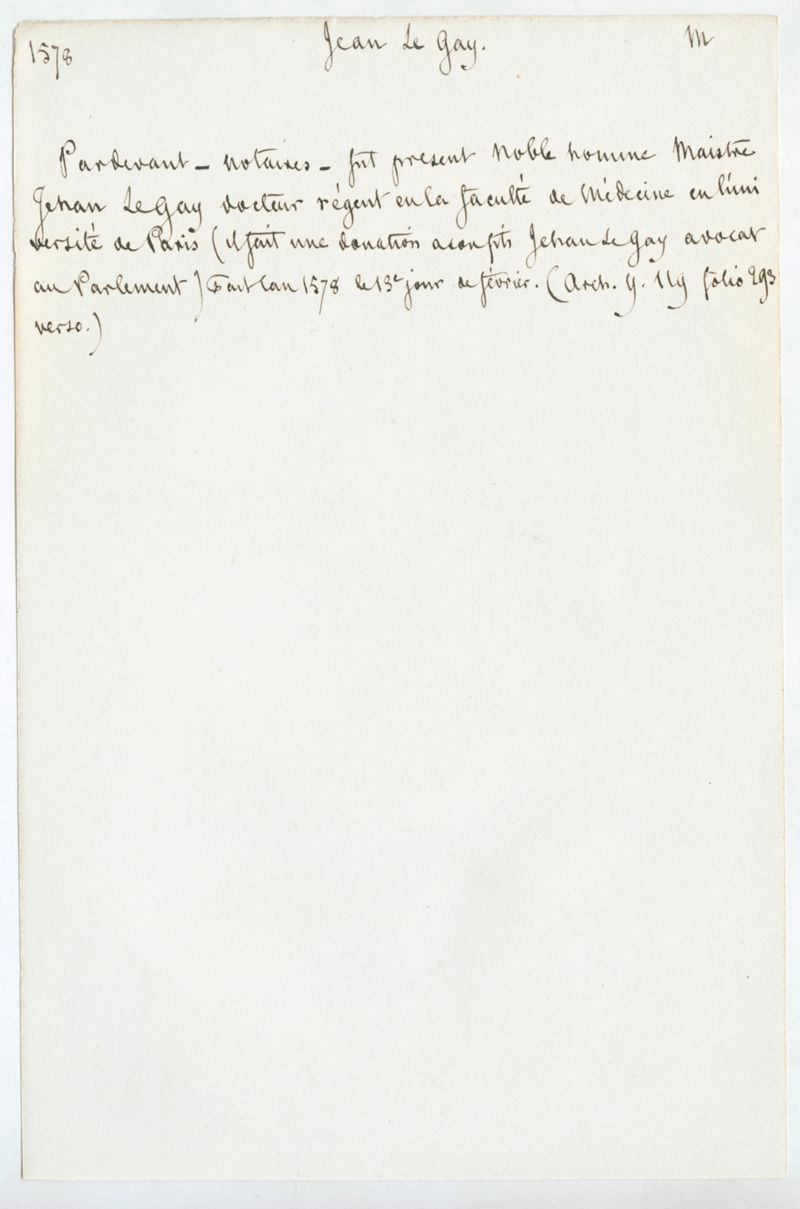 1578 Jean Le Gay. M
Pardevant _ notaires _ fut present Noble homme Maistre
Jehan Le Gay docteur régent en la faculté de Médecine en l'uni
versité de Paris (il fait une donation a son fils Jehan Le Gay avocat
au Parlement) Fait lan 1578 le 13e jour de février. (Arch. Y. 119 folio 293
verso.)